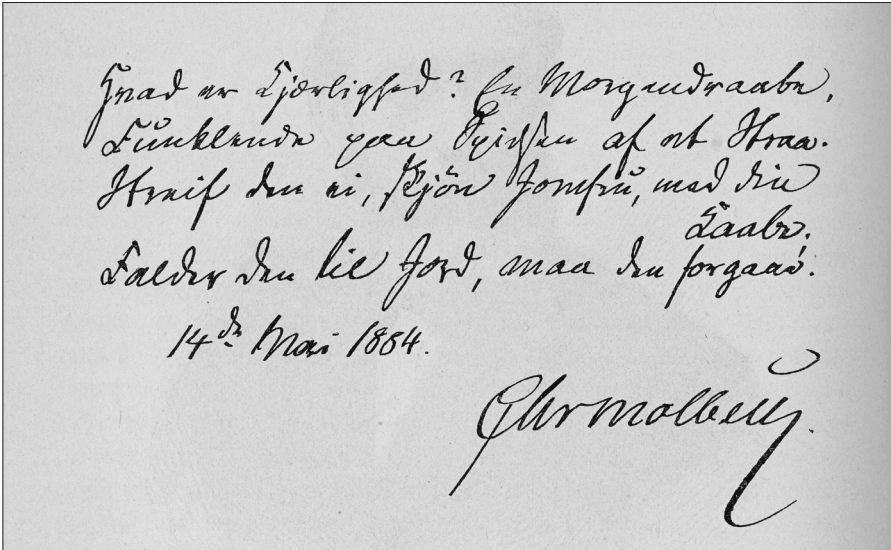 Hvad er Kjærlighed? En Morgendraabe,
Funklende paa Spidsen af et Straa.
Streif den ei, skjön Jomfru, med din
Kaabe;
Falder den til Jord, maa den forgaae.
14de Mai 1884.
Chr Molbech